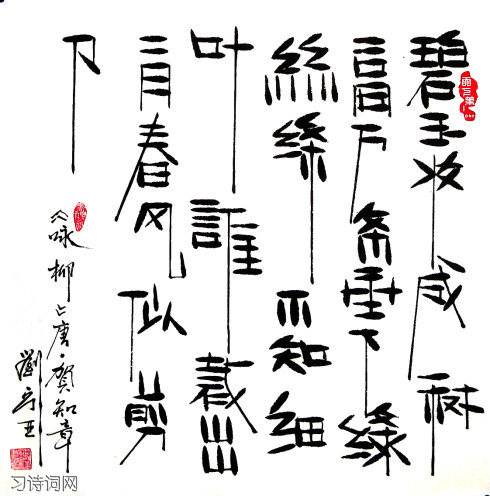 碧玉妆成树
高万条垂下绿
絲絛不知細
叶誰裁出
二月春风似剪
刀
咏柳唐·贺知章
习诗词网